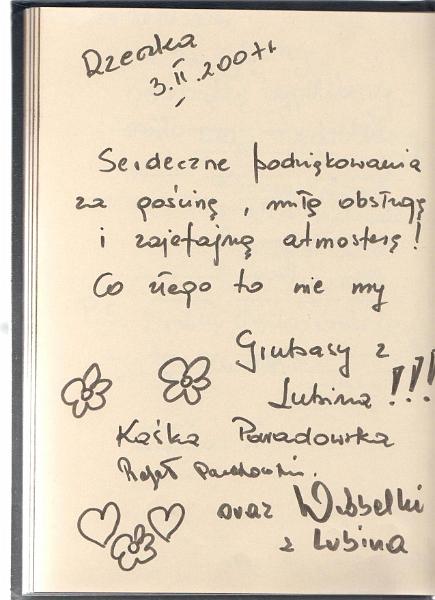 Rzeczka
3.II.2007r.
Serdeczne podziękowania
za gościnę, miłą obsługę
i zajefajną atmosferę!
Co złego to nie my
Grubasy z
Lubina!!!
Kaśka Paradowska
Rafał
oraz Wróbelki
z Lubina